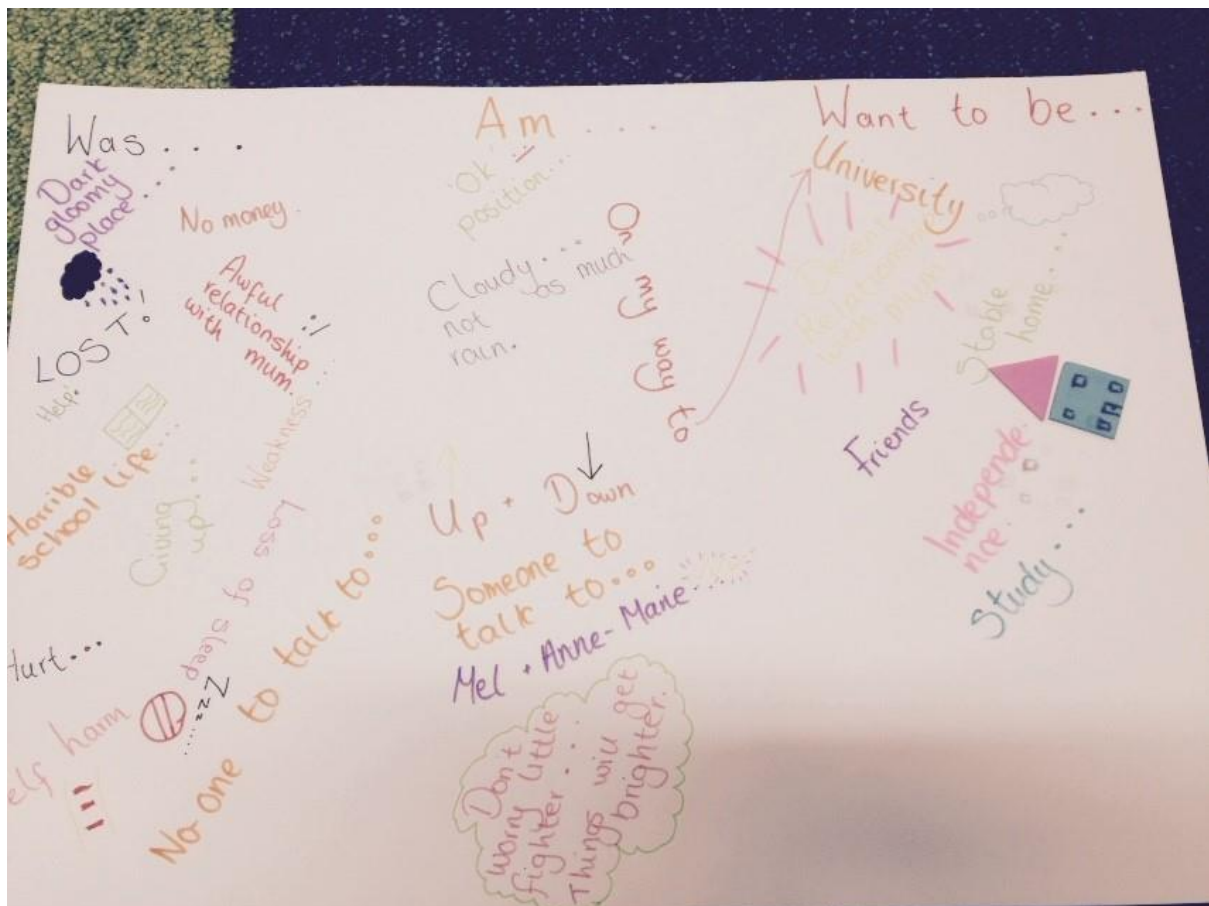 Was....
Dark
gloomy
place....
No money.
LOST!
Awful :/
relationship
with mum...
Help!
Horrible
school life...
Giving
up...
Weakness
Loss of sleep
Hurt...
elf harm
zzZ
No one to talk to...
Am....
'Ok'
position...
Cloudy....
not as much
rain.
On my way to
Up + Down
Someone to
talk to...
Mel + Anne-Marie....
Don't
worry little
fighter....
Things will get
brighter.
Want to be...
University
Decent
Relationship
with mum
Stable
home....
Friends
Independe
nce.
Study....